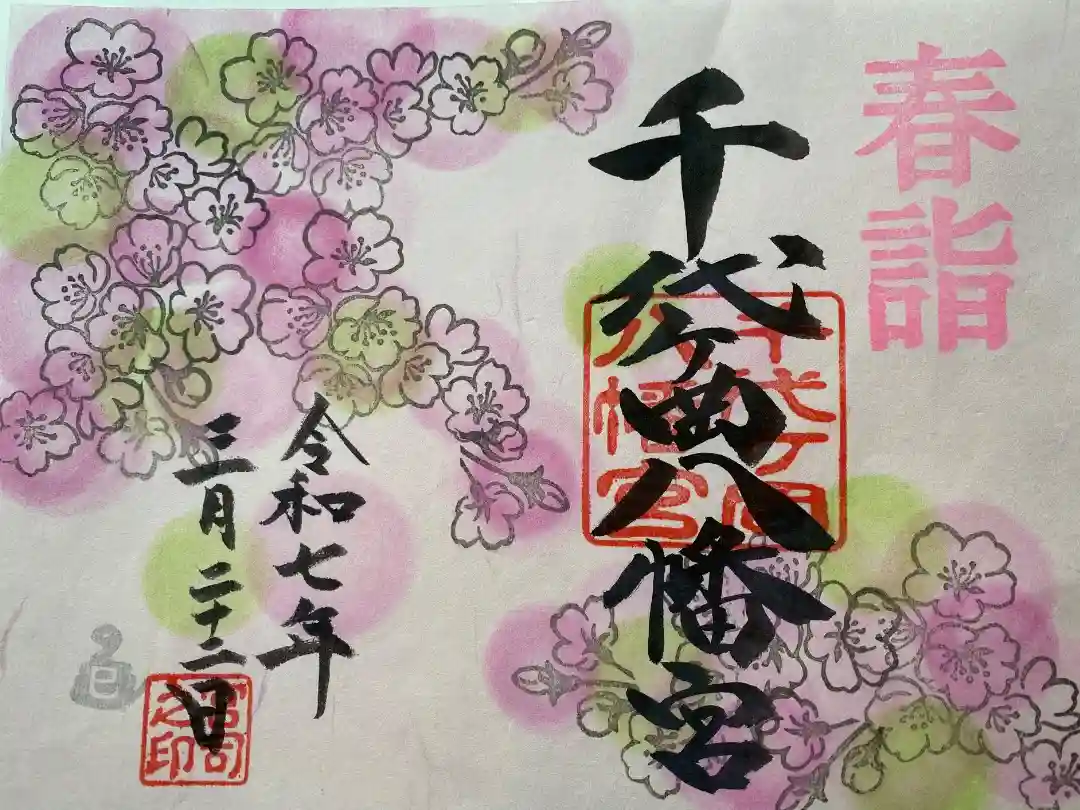 春詣
千代ケ岡八幡宮
千代ケ岡
八幡宮
令和七年
三月二十二日
宮司
之印
巳